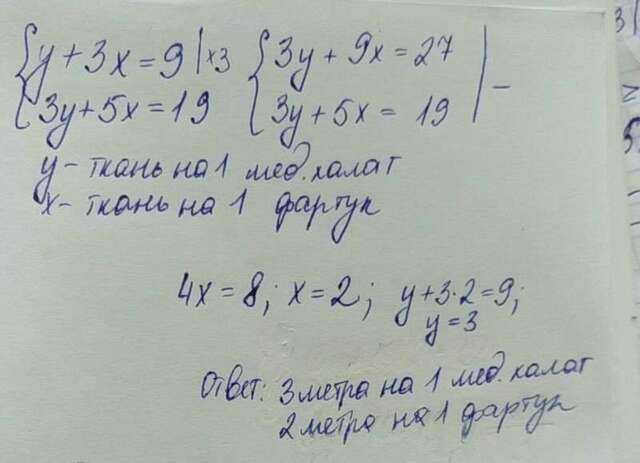 { y + 3x = 9 | ×3 { 3y + 9x = 27 | −
{ 3y + 5x = 19 { 3y + 5x = 19
y - ткань на 1 мед. халат
x - ткань на 1 фартук
4x = 8; x = 2; y + 3·2 = 9;
y = 3
Ответ: 3 метра на 1 мед. халат
2 метра на 1 фартук